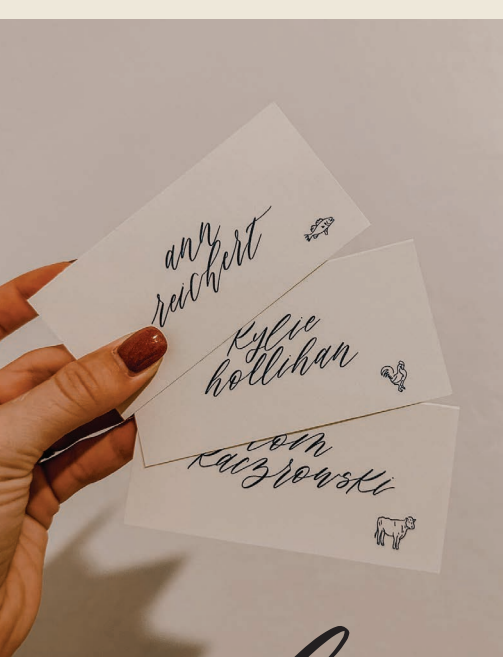 ann
reichert
kylie
hollihan
tom
kaczrowski